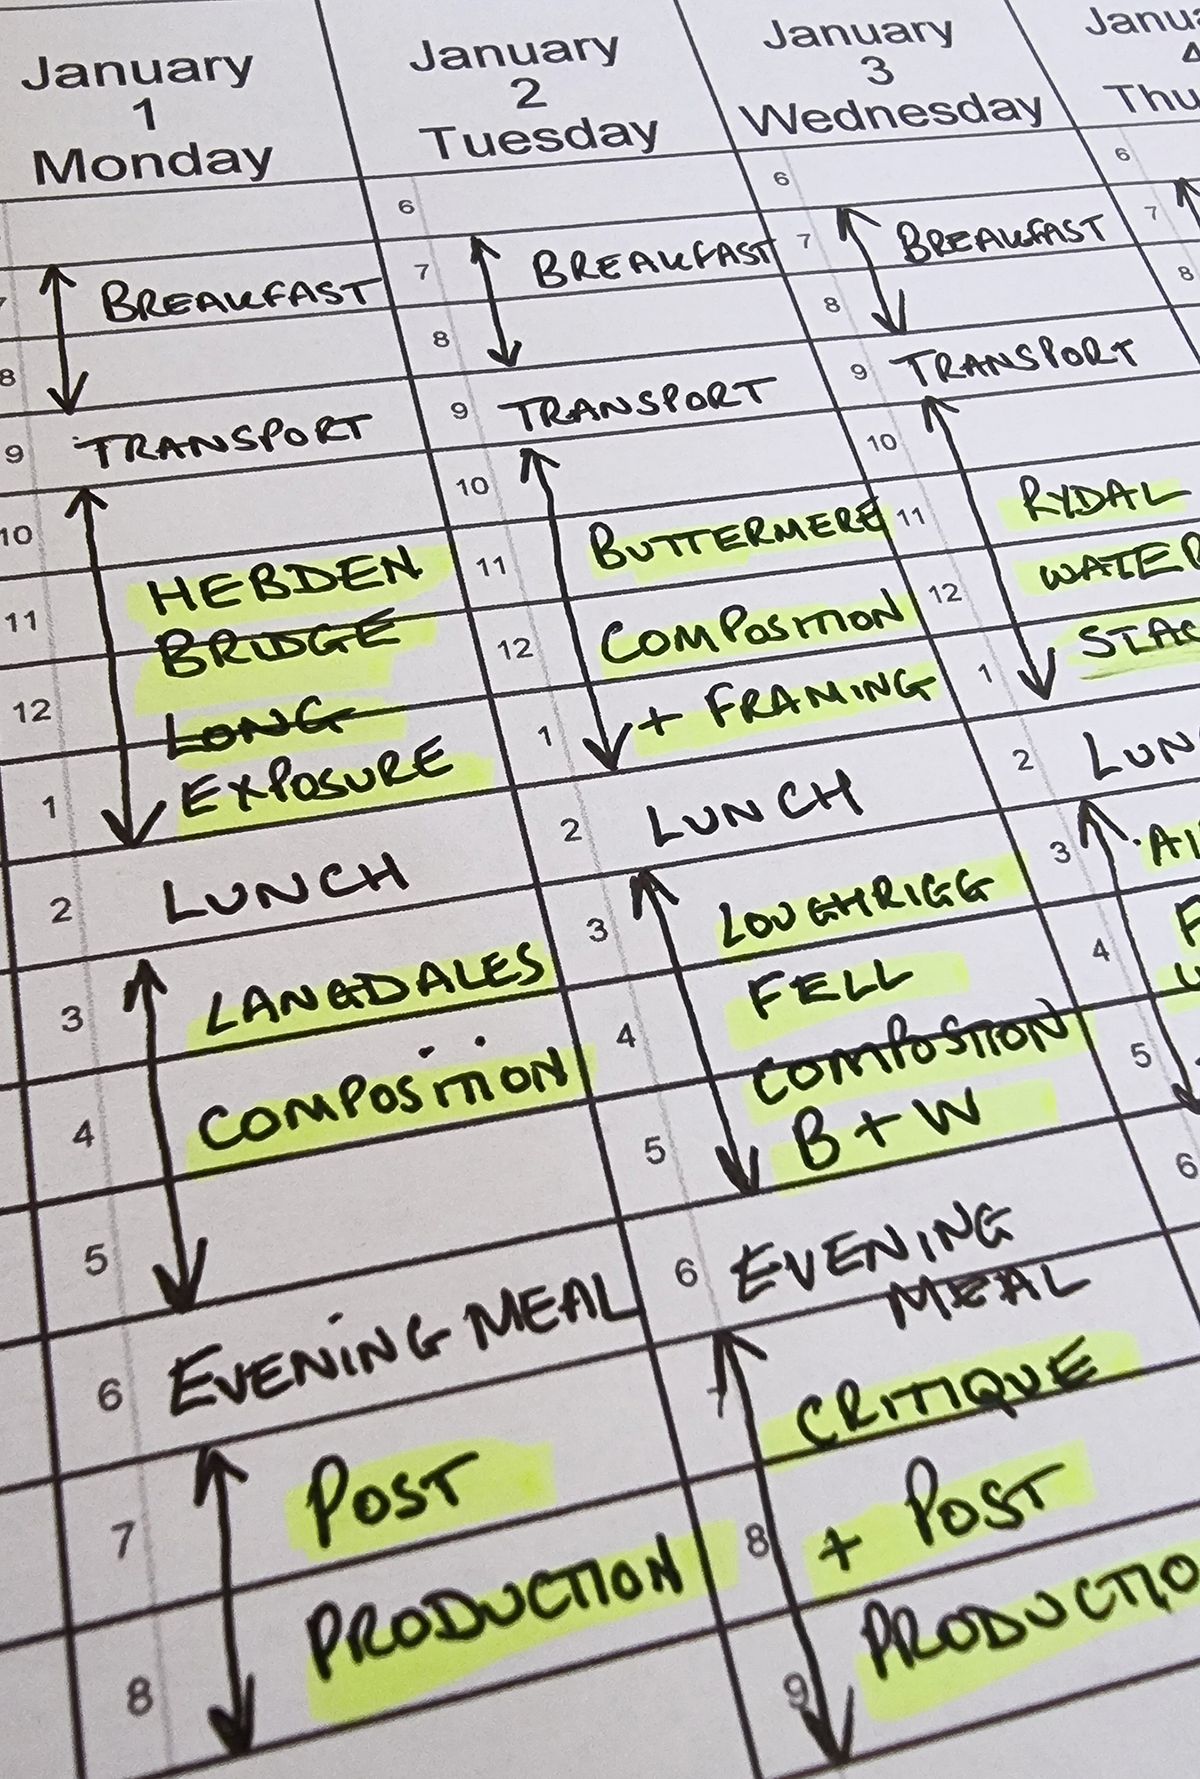 January
1
Monday
7
8
9
10
11
12
1
2
3
4
5
6
7
8
BREAKFAST
TRANSPORT
HEBDEN
BRIDGE
LONG
EXPOSURE
LUNCH
LANGDALES
COMPOSITION
EVENING MEAL
POST
PRODUCTION
January
2
Tuesday
6
7
8
9
10
11
12
1
2
3
4
5
6
7
8
9
BREAKFAST
TRANSPORT
BUTTERMERE
COMPOSITION
+ FRAMING
LUNCH
LOUGHRIGG
FELL
COMPOSITION
B + W
EVENING
MEAL
CRITIQUE
+ POST
PRODUCTIO
January
3
Wednesday
6
7
8
9
10
11
12
1
2
3
4
5
6
BREAKFAST
TRANSPORT
RYDAL
WATER
LUN
Janu
4
Thu
6
7
8